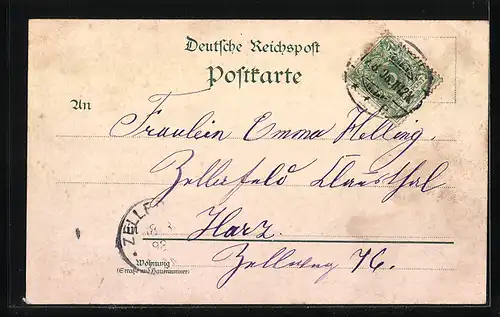 Deutsche Reichspost
Postkarte
An
Fräulein Emma Helling,
Zellerfeld Clausthal
Harz.
Zellweg 76.
ZELLE
98
Wohnung
(Straße und Hausnummer)